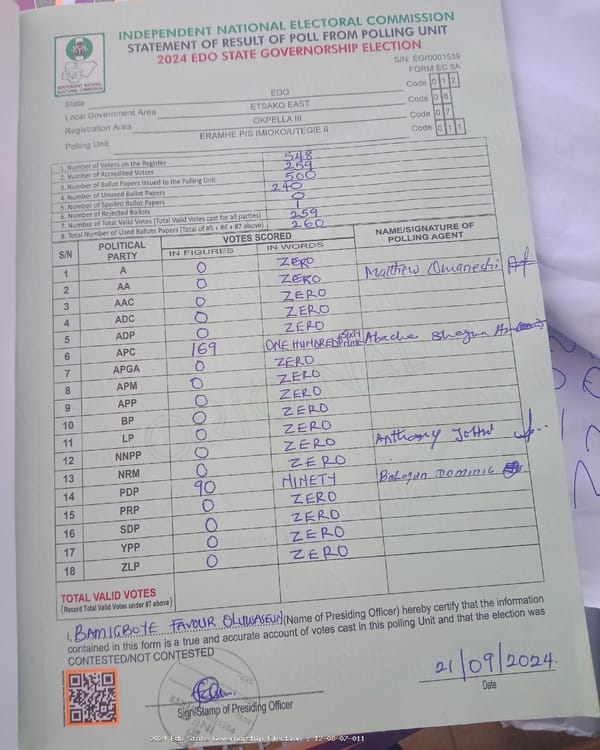 INDEPENDENT NATIONAL ELECTORAL COMMISSION
STATEMENT OF RESULT OF POLL FROM POLLING UNIT
2024 EDO STATE GOVERNORSHIP ELECTION
INDEPENDENT NATIONAL ELECTORAL COMMISSION
S/N: EG/0001539
FORM EC 8A
State EDO Code 012
Local Government Area ETSAKO EAST Code 08
Registration Area OKPELLA III Code 07
Polling Unit ERAMHE P/S IMIOKO/UTEGIE II Code 011
1. Number of Voters on the Register 548
2. Number of Accredited Voters 259
3. Number of Ballot Papers Issued to the Polling Unit 500
4. Number of Unused Ballot Papers 240
5. Number of Spoiled Ballot Papers 0
6. Number of Rejected Ballots 1
7. Number of Total Valid Votes (Total Valid Votes cast for all parties) 259
8. Total Number of Used Ballots Papers (Total of #5 + #6 + #7 above) 260
S/N POLITICAL PARTY VOTES SCORED NAME/SIGNATURE OF POLLING AGENT
IN FIGURES IN WORDS
1 A 0 ZERO
2 AA 0 ZERO Matthew
3 AAC 0 ZERO
4 ADC 0 ZERO
5 ADP 0 ZERO
6 APC 169 ONE HUNDRED Sixty Nine
7 APGA 0 ZERO
8 APM 0 ZERO
9 APP 0 ZERO
10 BP 0 ZERO
11 LP 0 ZERO
12 NNPP 0 ZERO Anthony
13 NRM 0 ZERO
14 PDP 90 NINETY Balogun DOMINIC
15 PRP 0 ZERO
16 SDP 0 ZERO
17 YPP 0 ZERO
18 ZLP 0 ZERO
TOTAL VALID VOTES
(Record Total Valid Votes under #7 above)
I, BAMIGBOYE FAVOUR OLUWASEUN (Name of Presiding Officer) hereby certify that the information
contained in this form is a true and accurate account of votes cast in this polling Unit and that the election was
CONTESTED/NOT CONTESTED
21/09/2024
Date
Sign/Stamp of Presiding Officer
2024 Edo State Governorship Election : 12-08-07-011